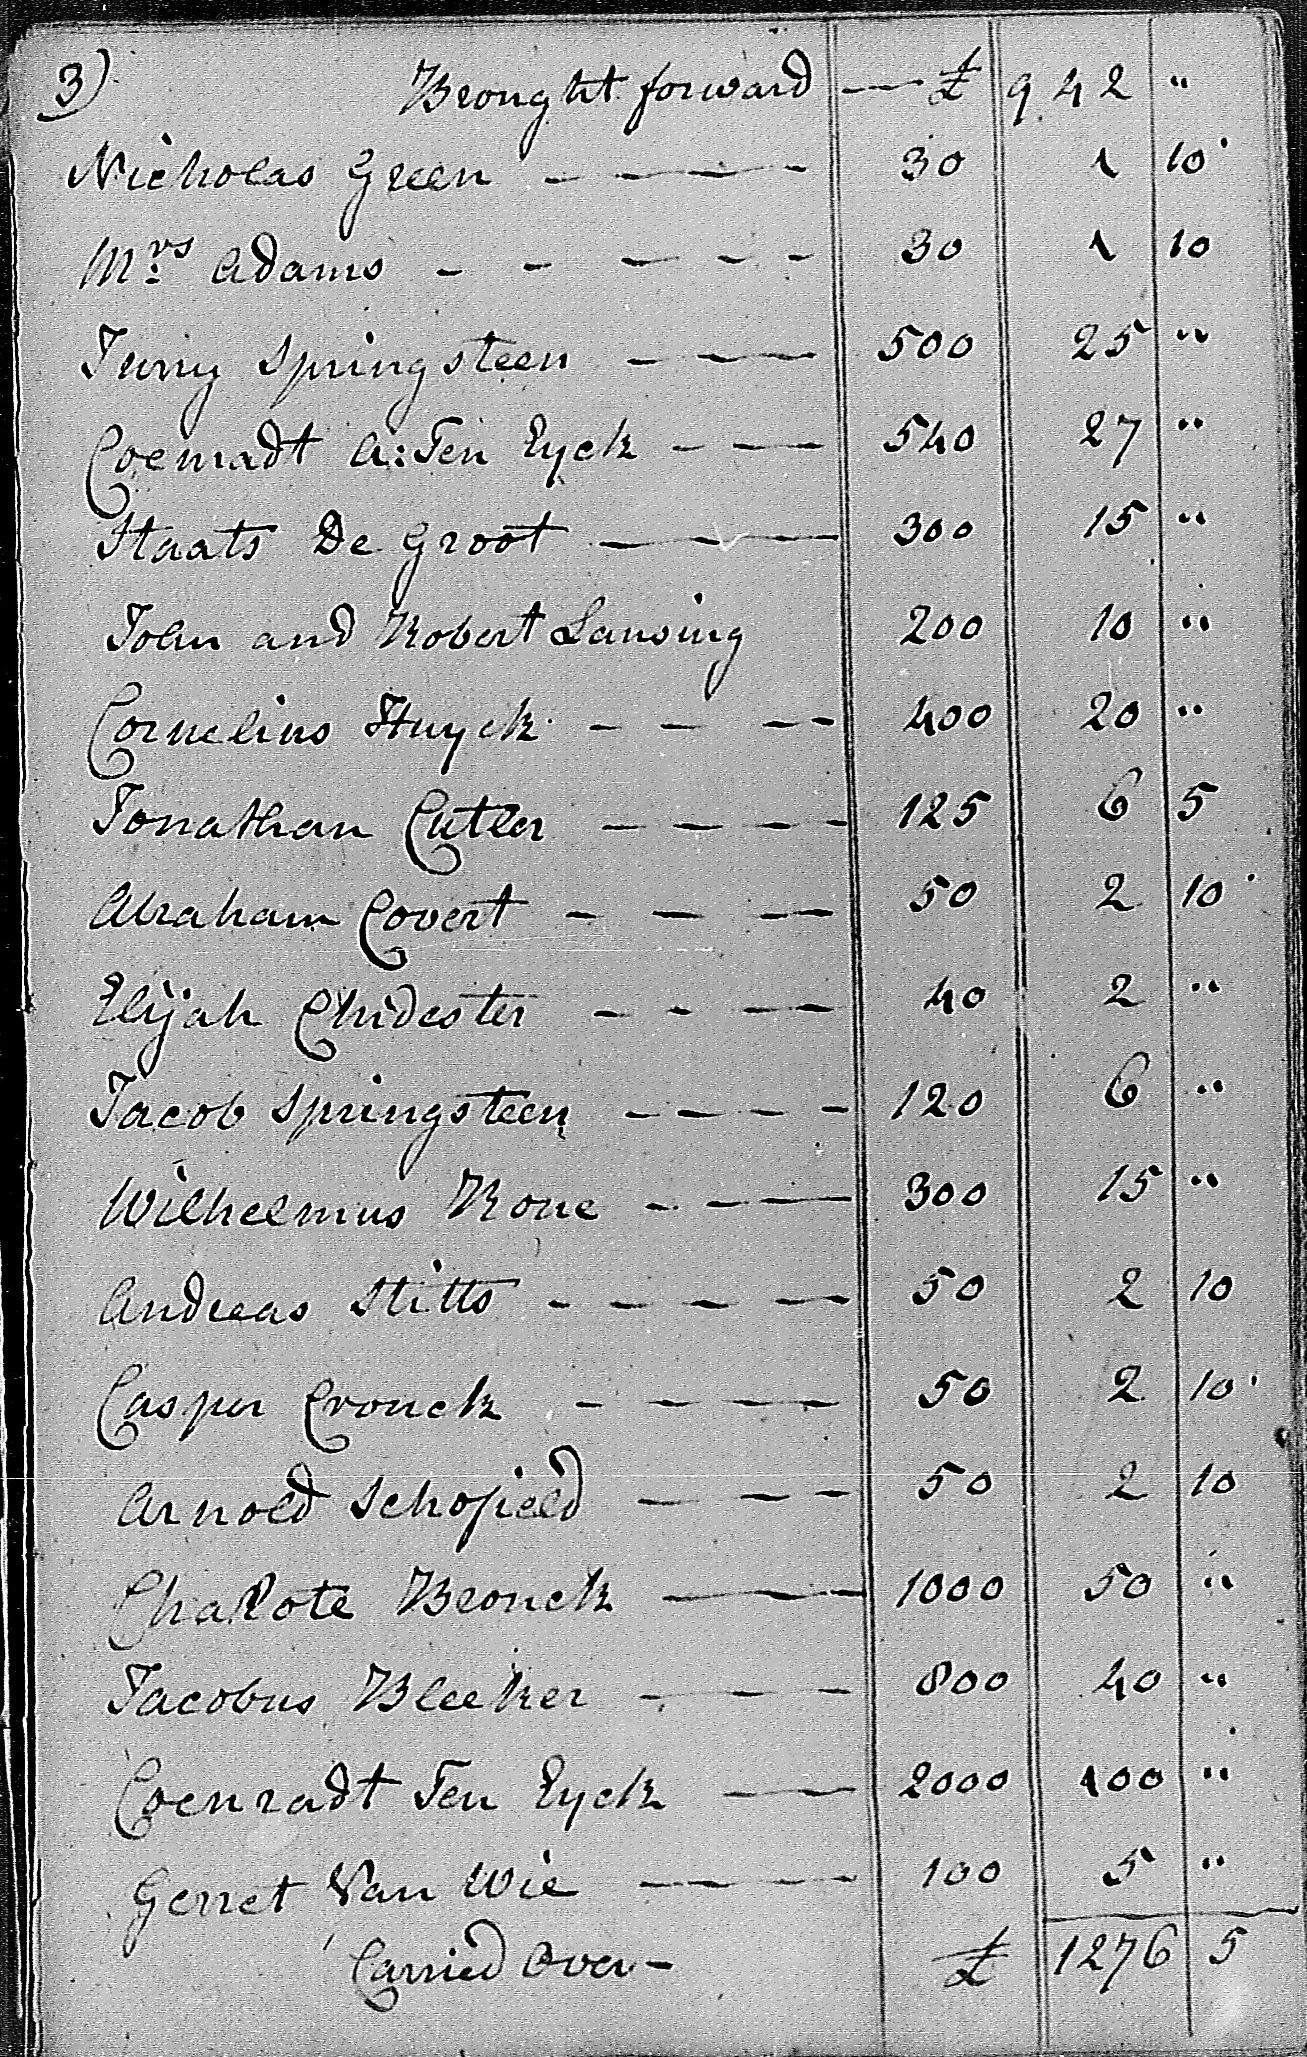 3) Brought forward — £ 942 "
Nicholas Green - - - - 30 1 10
Mrs Adams - - - - - 30 1 10
Jurry Springsteen - - - 500 25 "
Coenradt A: Ten Eyck - - - 540 27 "
Staats De Groot - - - 300 15 "
John and Robert Lansing 200 10 "
Cornelius Huyck - - - - 400 20 "
Jonathan Cutler - - - - 125 6 5
Abraham Covert - - - - 50 2 10
Elijah Chidester - - - - 40 2 "
Jacob Springsteen - - - - 120 6 "
Wilhelmus Rone - - - 300 15 "
Andreas Stitts - - - - 50 2 10
Casper Cronck - - - - 50 2 10
Arnold Schofield - - - 50 2 10
Charlote Bronck - - - 1000 50 "
Jacobus Bleeker - - - 800 40 "
Coenradt Ten Eyck - - 2000 100 "
Gerret Van Wie - - - - 100 5 "
Carried Over - £ 1276 5